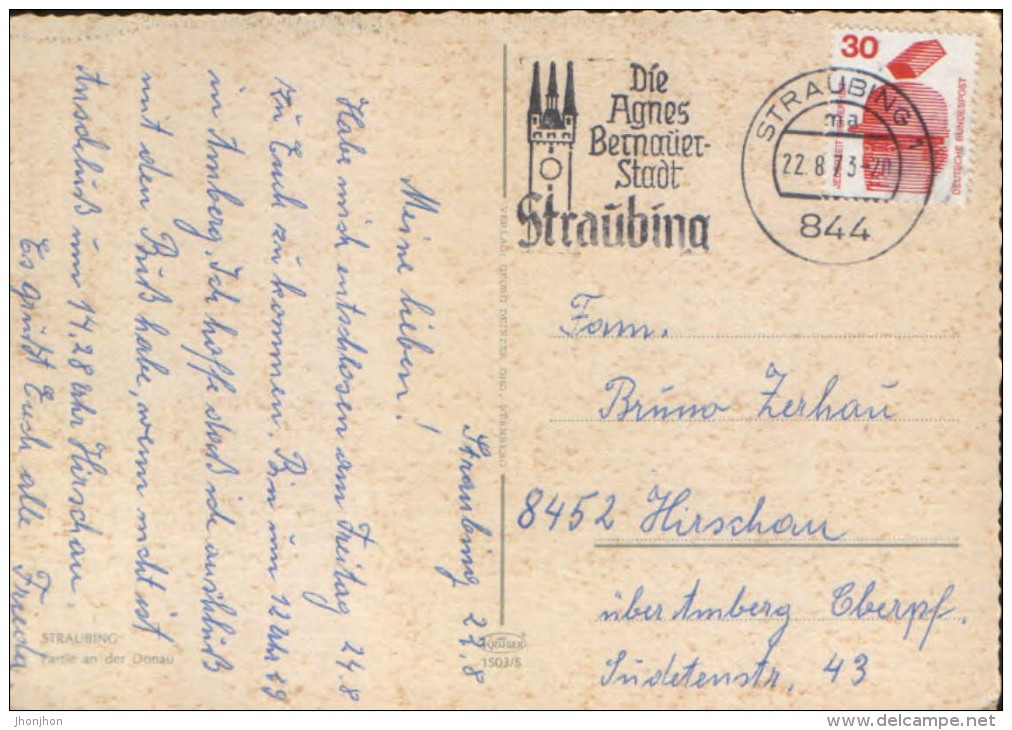 Straubing 22.8
Meine lieben!
Habe mich entschlosen am Freitag 24.8
zu Euch zu kommen. Bin um 12 Uhr 29
in Amberg, Ich hoffe daß ich anschluß
mit den Buß habe, wenn nicht ist
Anschluß um 14,28 Uhr Hirschau.
Es grüßt Euch alle Frieda
STRAUBING
Partie an der Donau
1503/8
Die
Agnes
Bernauer-
Stadt
Straubing
STRAUBING 1
ma
22.8.73-20
844
30
DEUTSCHE BUNDESPOST
Fam.
Bruno Zerhau
8452 Hirschau
über Amberg Oberpf.
Sudetenstr. 43
jhonjhon
www.delcampe.net